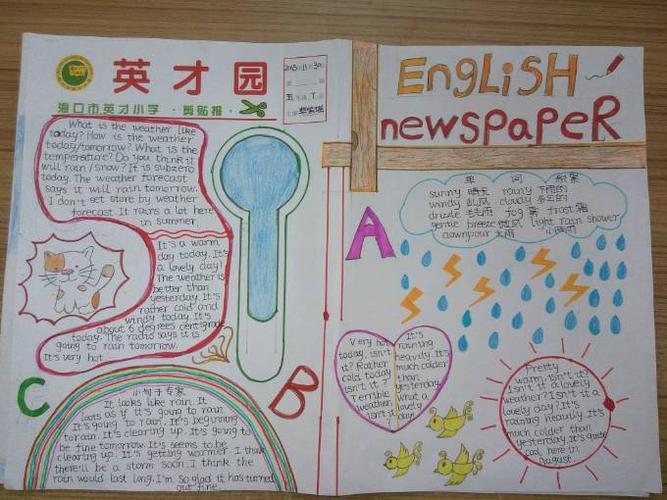 英才园
海口市英才小学 ·剪贴报·
2015.11.30
五 年级
What is the weather like
today? How is the weather
today/tomorrow? What is the
temperature? Do you think it
will rain/snow? It is subzero
today. The weather forecast
says it will rain tomorrow.
I don't set store by weather
forecast. It rains a lot here
in summer.
It's a warm
day today. It's
a lovely day!
The weather is
better than
yesterday. It's
rather cold and
windy today. It's
about 6 degrees centigrade
today. The radio says it is
going to rain tomorrow.
It's very hot
C
小句子专家
It looks like rain. It
loots as if it's going to rain.
It's going to rain. It's beginning
to rain. It's clearing up. It's going to
be fine tomorrow. It's seems to be
clearing up. It's getting warmer. I think
there'll be a storm soon. I think the
rain would last long. I'm so glad it has turned
out fine.
B
English
newspapeR
单 词 积累
sunny 晴天 rainy 下雨的
windy 乱风 cloudy 多云的
drizzle 毛毛雨 fog 雾 frost 霜
gentle breeze 微风 light rain shower
downpour 大雨 小阵雨
A
Very hot
today, isn't
it? Rather
cold today
isn't it?
Terrible
weather,
isn't it?
It's
raining
heavily. It's
much colder
than
yesterday.
What a
lovely
day!
Pretty
warm, isn't it?
Isn't it a lovely
weather? Isn't it a
lovely day? It's
raining heavily. It's
much colder than
yesterday. It's quite
cool here in
August.